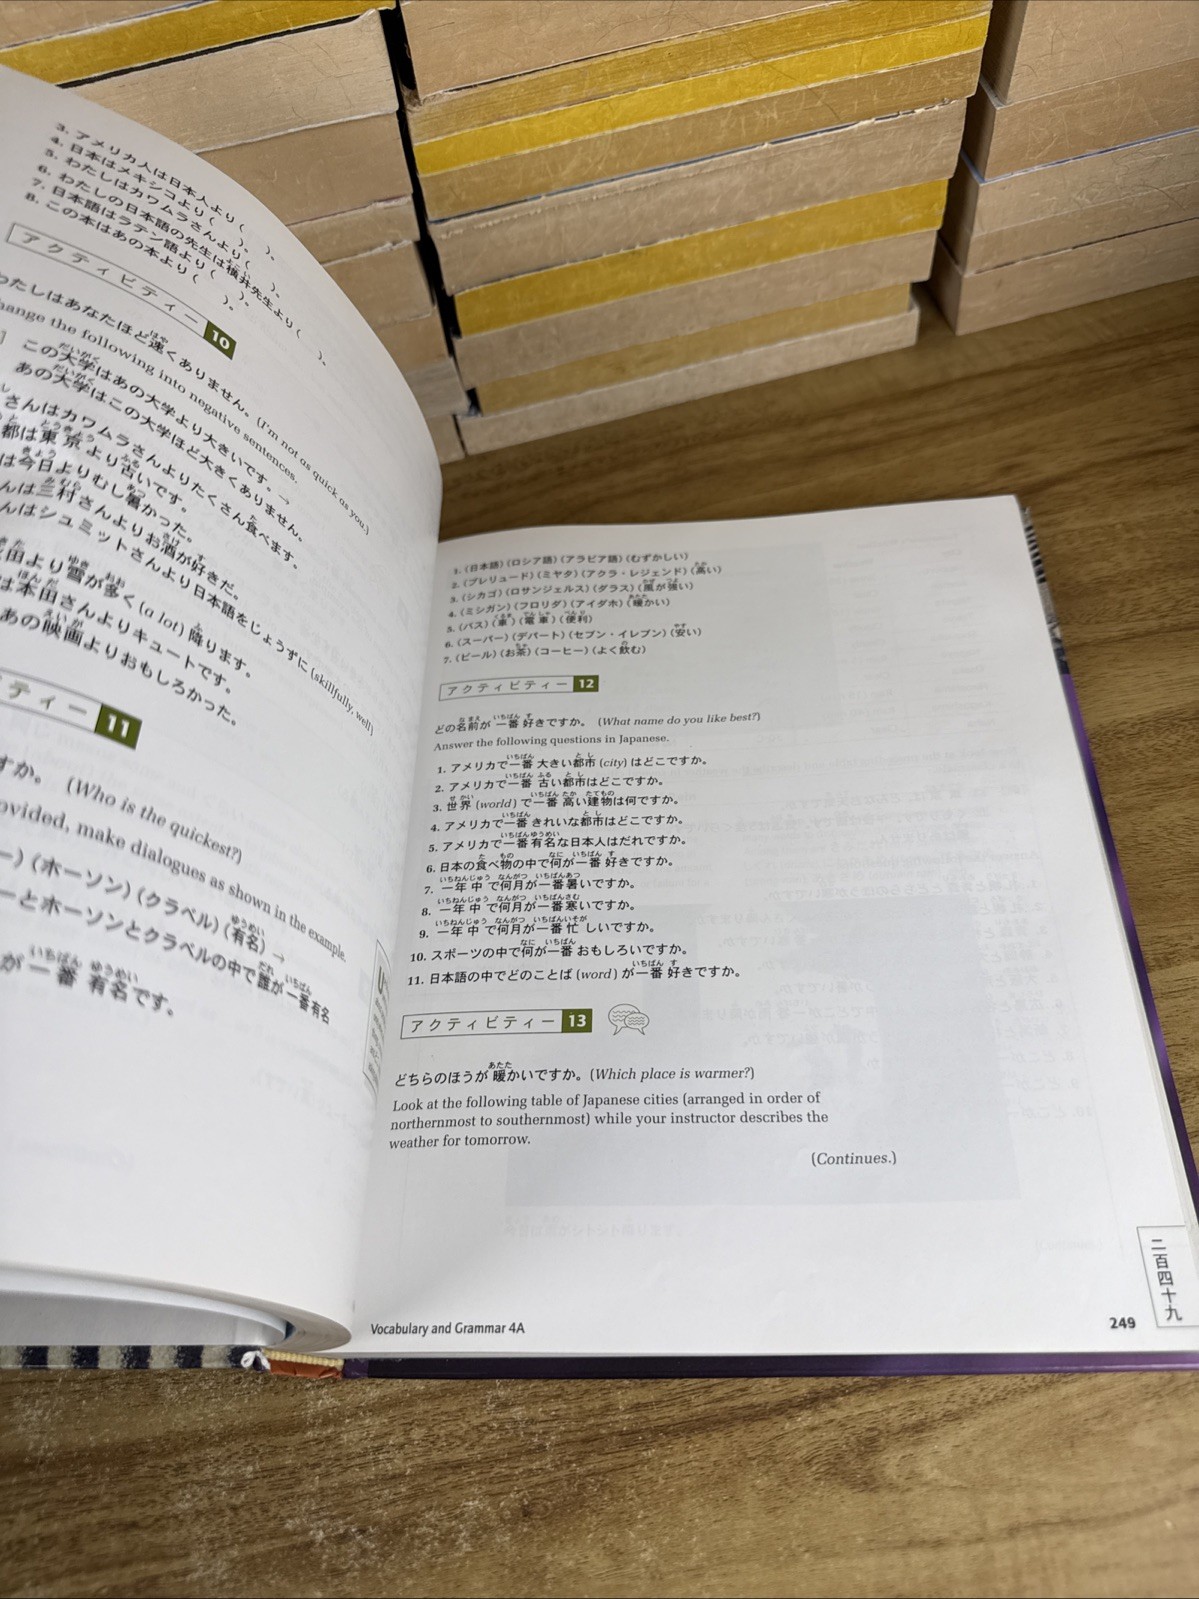 3. アメリカ人は日本人より(　)。
4. 日本はメキシコより(　)。
5. わたしはカワムラさんより(　)。
6. わたしの日本語の先生は横井先生より(　)。
7. 日本語はラテン語より(　)。
8. この本はあの本より(　)。
アクティビティー 10
わたしはあなたほど速くありません。(I'm not as quick as you.)
hange the following into negative sentences.
] この大学はあの大学より大きいです。→
あの大学はこの大学ほど大きくありません。
さんはカワムラさんよりたくさん食べます。
都は東京より古いです。
は今日よりむし暑かった。
んは三村さんよりお酒が好きだ。
んはシュミットさんより日本語をじょうずに (skillfully, well)
田より雪が多く (a lot) 降ります。
は本田さんよりキュートです。
あの映画よりおもしろかった。
ティー 11
すか。 (Who is the quickest?)
ovided, make dialogues as shown in the example.
ー) (ホーソン) (クラベル) (有名) →
ーとホーソンとクラベルの中で誰が一番有名
が一番有名です。
1. (日本語) (ロシア語) (アラビア語) (むずかしい)
2. (プレリュード) (ミヤタ) (アクラ・レジェンド) (高い)
3. (シカゴ) (ロサンジェルス) (ダラス) (風が強い)
4. (ミシガン) (フロリダ) (アイダホ) (暖かい)
5. (バス) (車) (電車) (便利)
6. (スーパー) (デパート) (セブン・イレブン) (安い)
7. (ビール) (お茶) (コーヒー) (よく飲む)
アクティビティー 12
どの名前が一番好きですか。 (What name do you like best?)
Answer the following questions in Japanese.
1. アメリカで一番大きい都市 (city) はどこですか。
2. アメリカで一番古い都市はどこですか。
3. 世界 (world) で一番高い建物は何ですか。
4. アメリカで一番きれいな都市はどこですか。
5. アメリカで一番有名な日本人はだれですか。
6. 日本の食べ物の中で何が一番好きですか。
7. 一年中で何月が一番暑いですか。
8. 一年中で何月が一番寒いですか。
9. 一年中で何月が一番忙しいですか。
10. スポーツの中で何が一番おもしろいですか。
11. 日本語の中でどのことば (word) が一番好きですか。
アクティビティー 13
どちらのほうが暖かいですか。(Which place is warmer?)
Look at the following table of Japanese cities (arranged in order of
northernmost to southernmost) while your instructor describes the
weather for tomorrow.
(Continues.)
Vocabulary and Grammar 4A
249
二百四十九